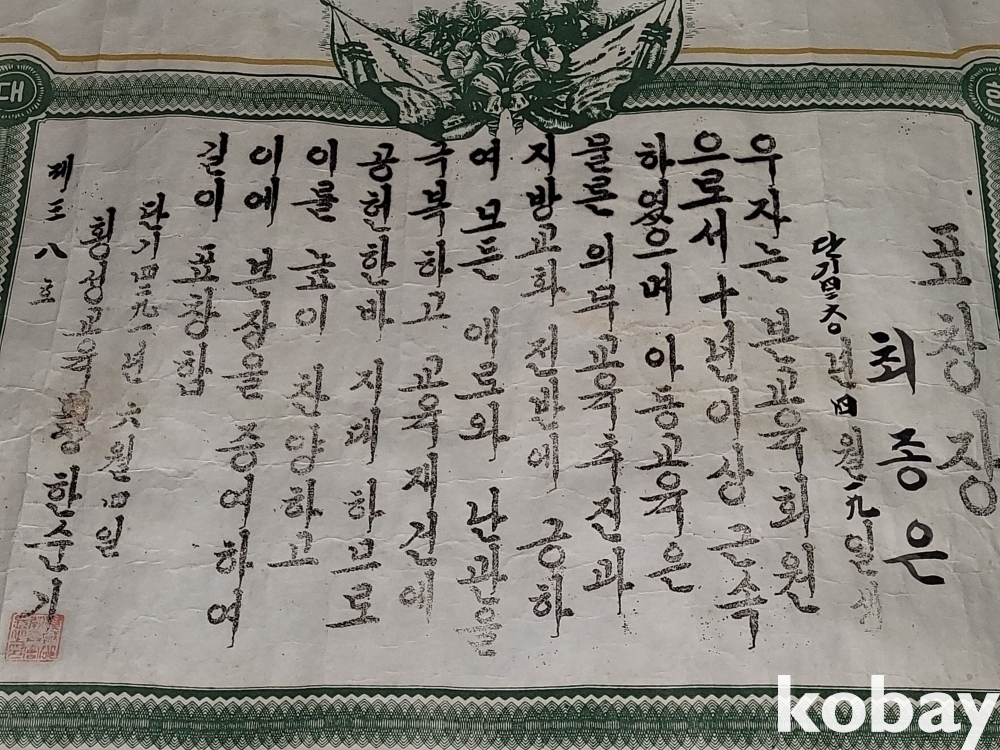 표창장
최종은
단기四二六〇년四월一九일생
우자는 본교육회원
으로서 十년이상 근속
하였으며 아동교육은
물론 의무교육추진과
지방교화 전반에 긍하
여 모든 애로와 난관을
극복하고 교육재건에
공헌한바 지대 하므로
이를 높이 찬양하고
이에 본장을 증여하여
길이 표창함
단기四二九一년 六월 四일
횡성교육 한순기
제三八호
대
kobay